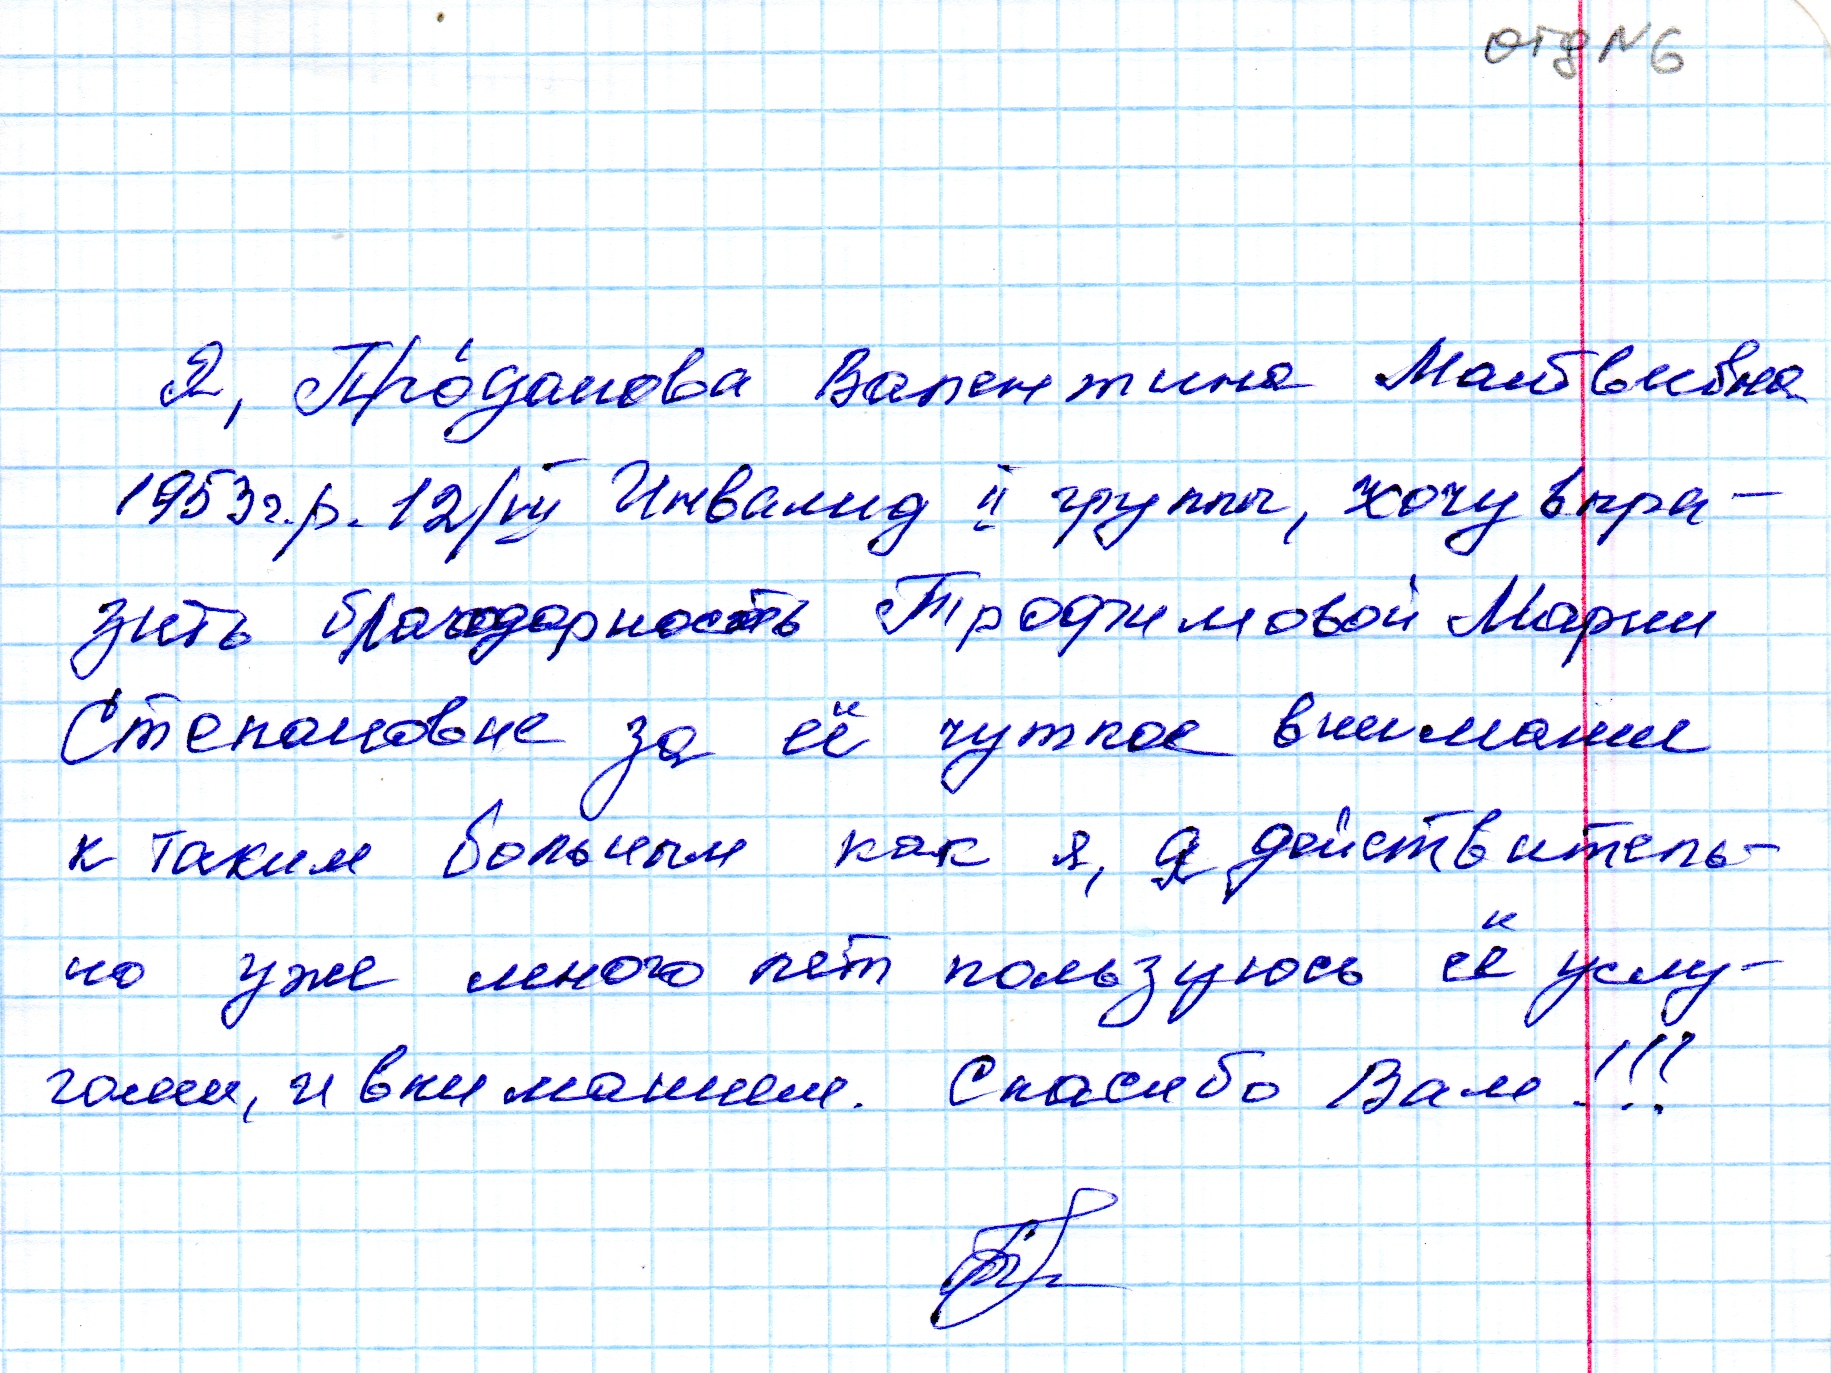 отд N 6
Я, Проданова Валентина Матвивна
1953 г.р. 12/VII Инвалид II группы, хочу выра-
зить благодарность Трофимовой Марии
Степановне за её чуткое внимание
к таким больным как я, я действитель-
но уже много лет пользуюсь её услу-
гами, и вниманием. Спасибо Вам!!!